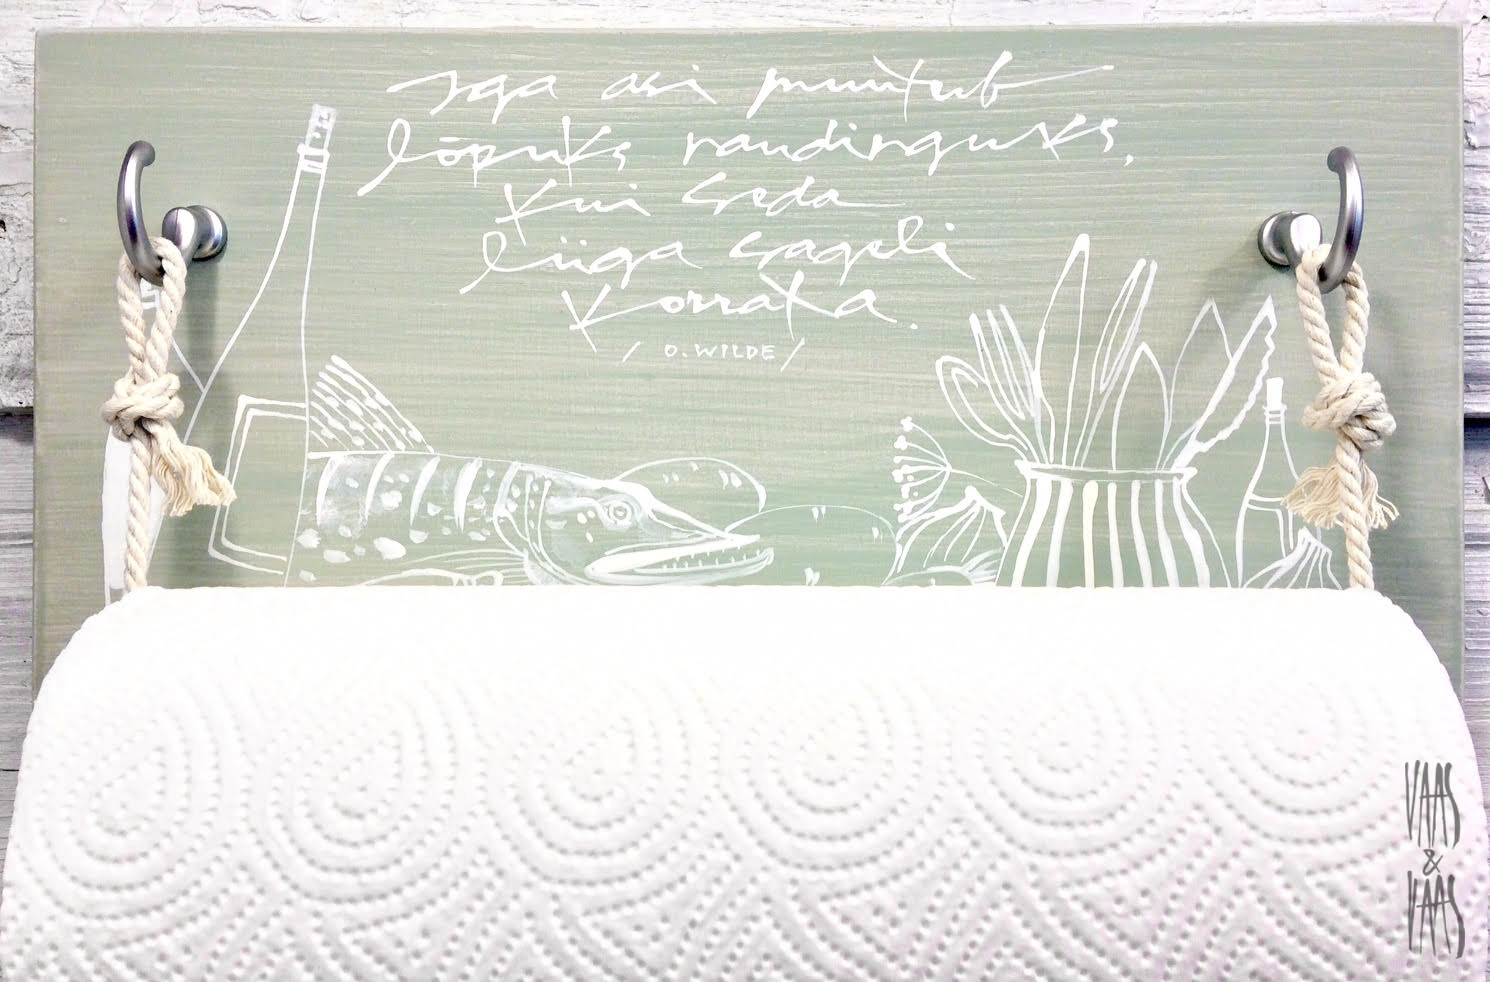 Iga asi muutub
lõpuks naudinguks,
kui seda
liiga sageli
korrata.
/ O. WILDE /
VAAS
&
VAAS